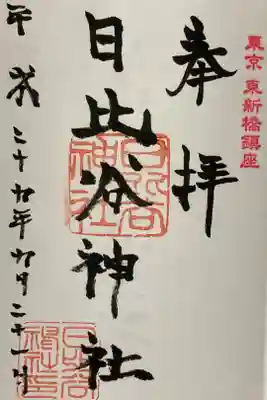 東京 東新橋鎮座
奉拝
日比谷神社
平成二十九年九月二十一日
日比谷神社